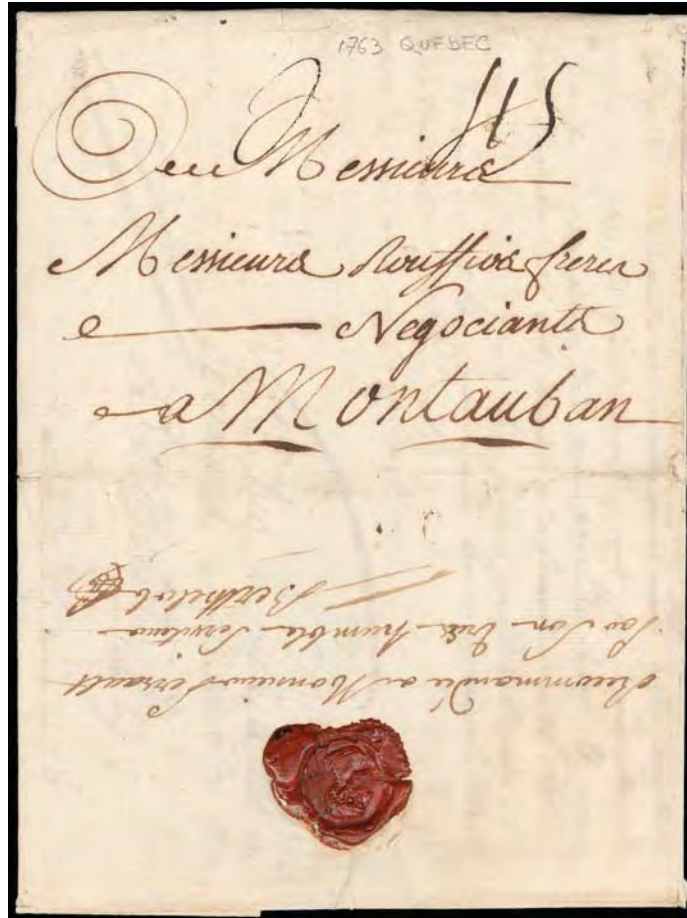 1763 QUEBEC
Messieurs
Messieurs Rouffios freres
Negociants
a Montauban
Recommandée a Monsieur Perrault
Par Son tres humble Serviteur
Berthelot